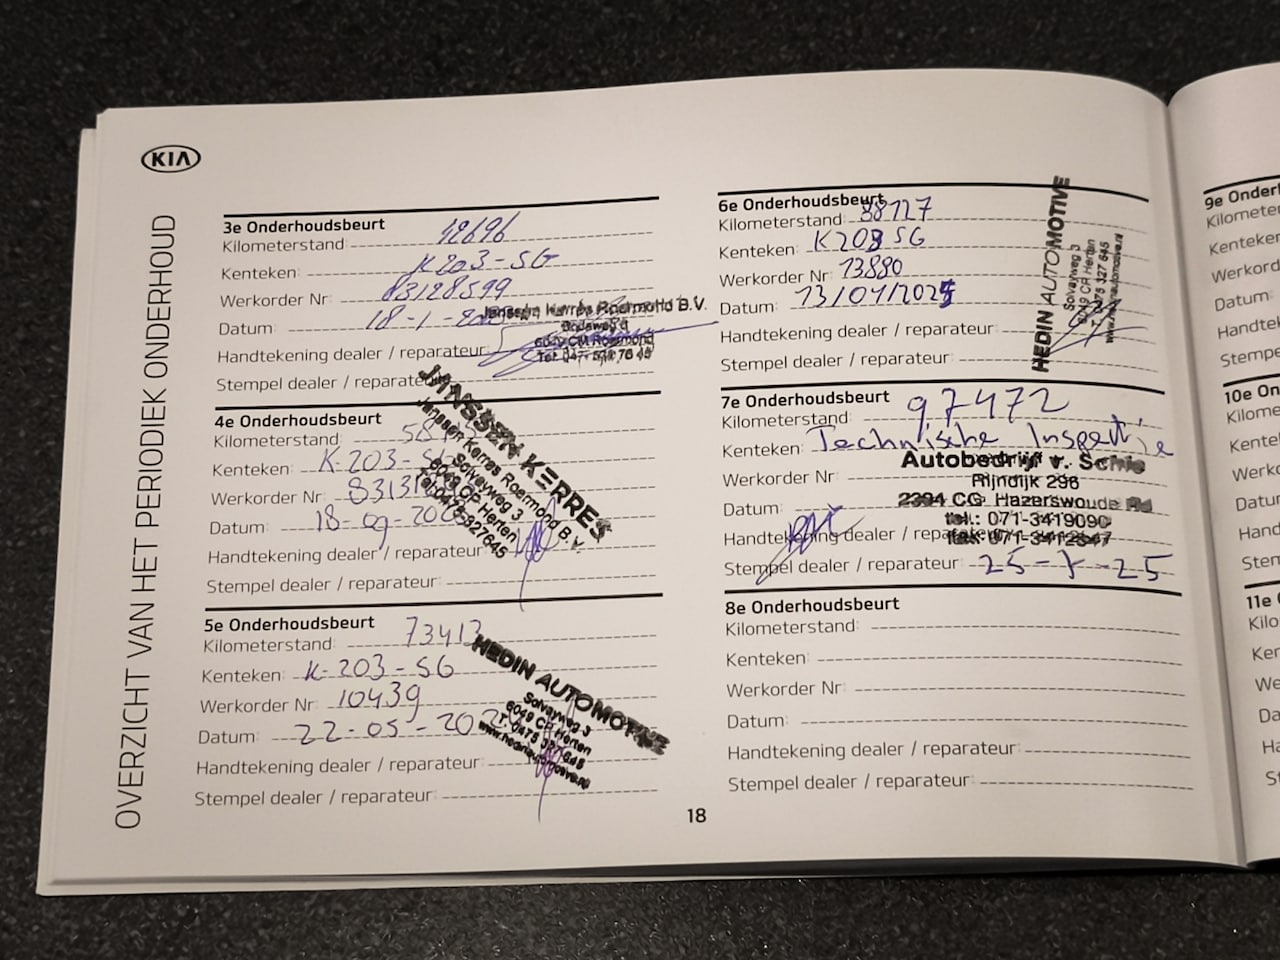 KIA
OVERZICHT VAN HET PERIODIEK ONDERHOUD
3e Onderhoudsbeurt
Kilometerstand 42696
Kenteken: K203-SG
Werkorder Nr: 83128599
Datum: 18-1-
Handtekening dealer / reparateur:
Stempel dealer / reparateur
Janssen Kerres Roermond B.V.
Roermond
4e Onderhoudsbeurt
Kilometerstand:
Kenteken: K-203-
Werkorder Nr
Datum: 18-09-
Handtekening dealer / reparateur
Stempel dealer / reparateur:
JANSSEN KERRES
Janssen Kerres Roermond B.V.
Solvayweg 3
6049 CP Herten
Tel: 0475-327645
5e Onderhoudsbeurt
Kilometerstand: 73413
Kenteken: K-203-SG
Werkorder Nr: 10439
Datum: 22-05-20
Handtekening dealer / reparateur:
Stempel dealer / reparateur:
HEDIN AUTOMOTIVE
Solvayweg 3
6049 CP Herten
T. 0475 327 645
www.hedinautomotive.nl
6e Onderhoudsbeurt
Kilometerstand 88127
Kenteken: K203 SG
Werkorder Nr: 13880
Datum:
Handtekening dealer / reparateur:
Stempel dealer / reparateur:
HEDIN AUTOMOTIVE
Solvayweg 3
6049 CP Herten
T. 0475 327 645
www.hedinautomotive.nl
7e Onderhoudsbeurt
Kilometerstand: 97472
Kenteken: Technische Inspectie
Werkorder Nr:
Datum:
Handtekening dealer / reparateur
Stempel dealer / reparateur
Autobedrijf v. Schie
Rijndijk 296
2394 CG Hazerswoude Rd
tel.: 071-3419090
fax: 071-3412847
8e Onderhoudsbeurt
Kilometerstand:
Kenteken:
Werkorder Nr:
Datum:
Handtekening dealer / reparateur:
Stempel dealer / reparateur:
18
9e
10e
11e